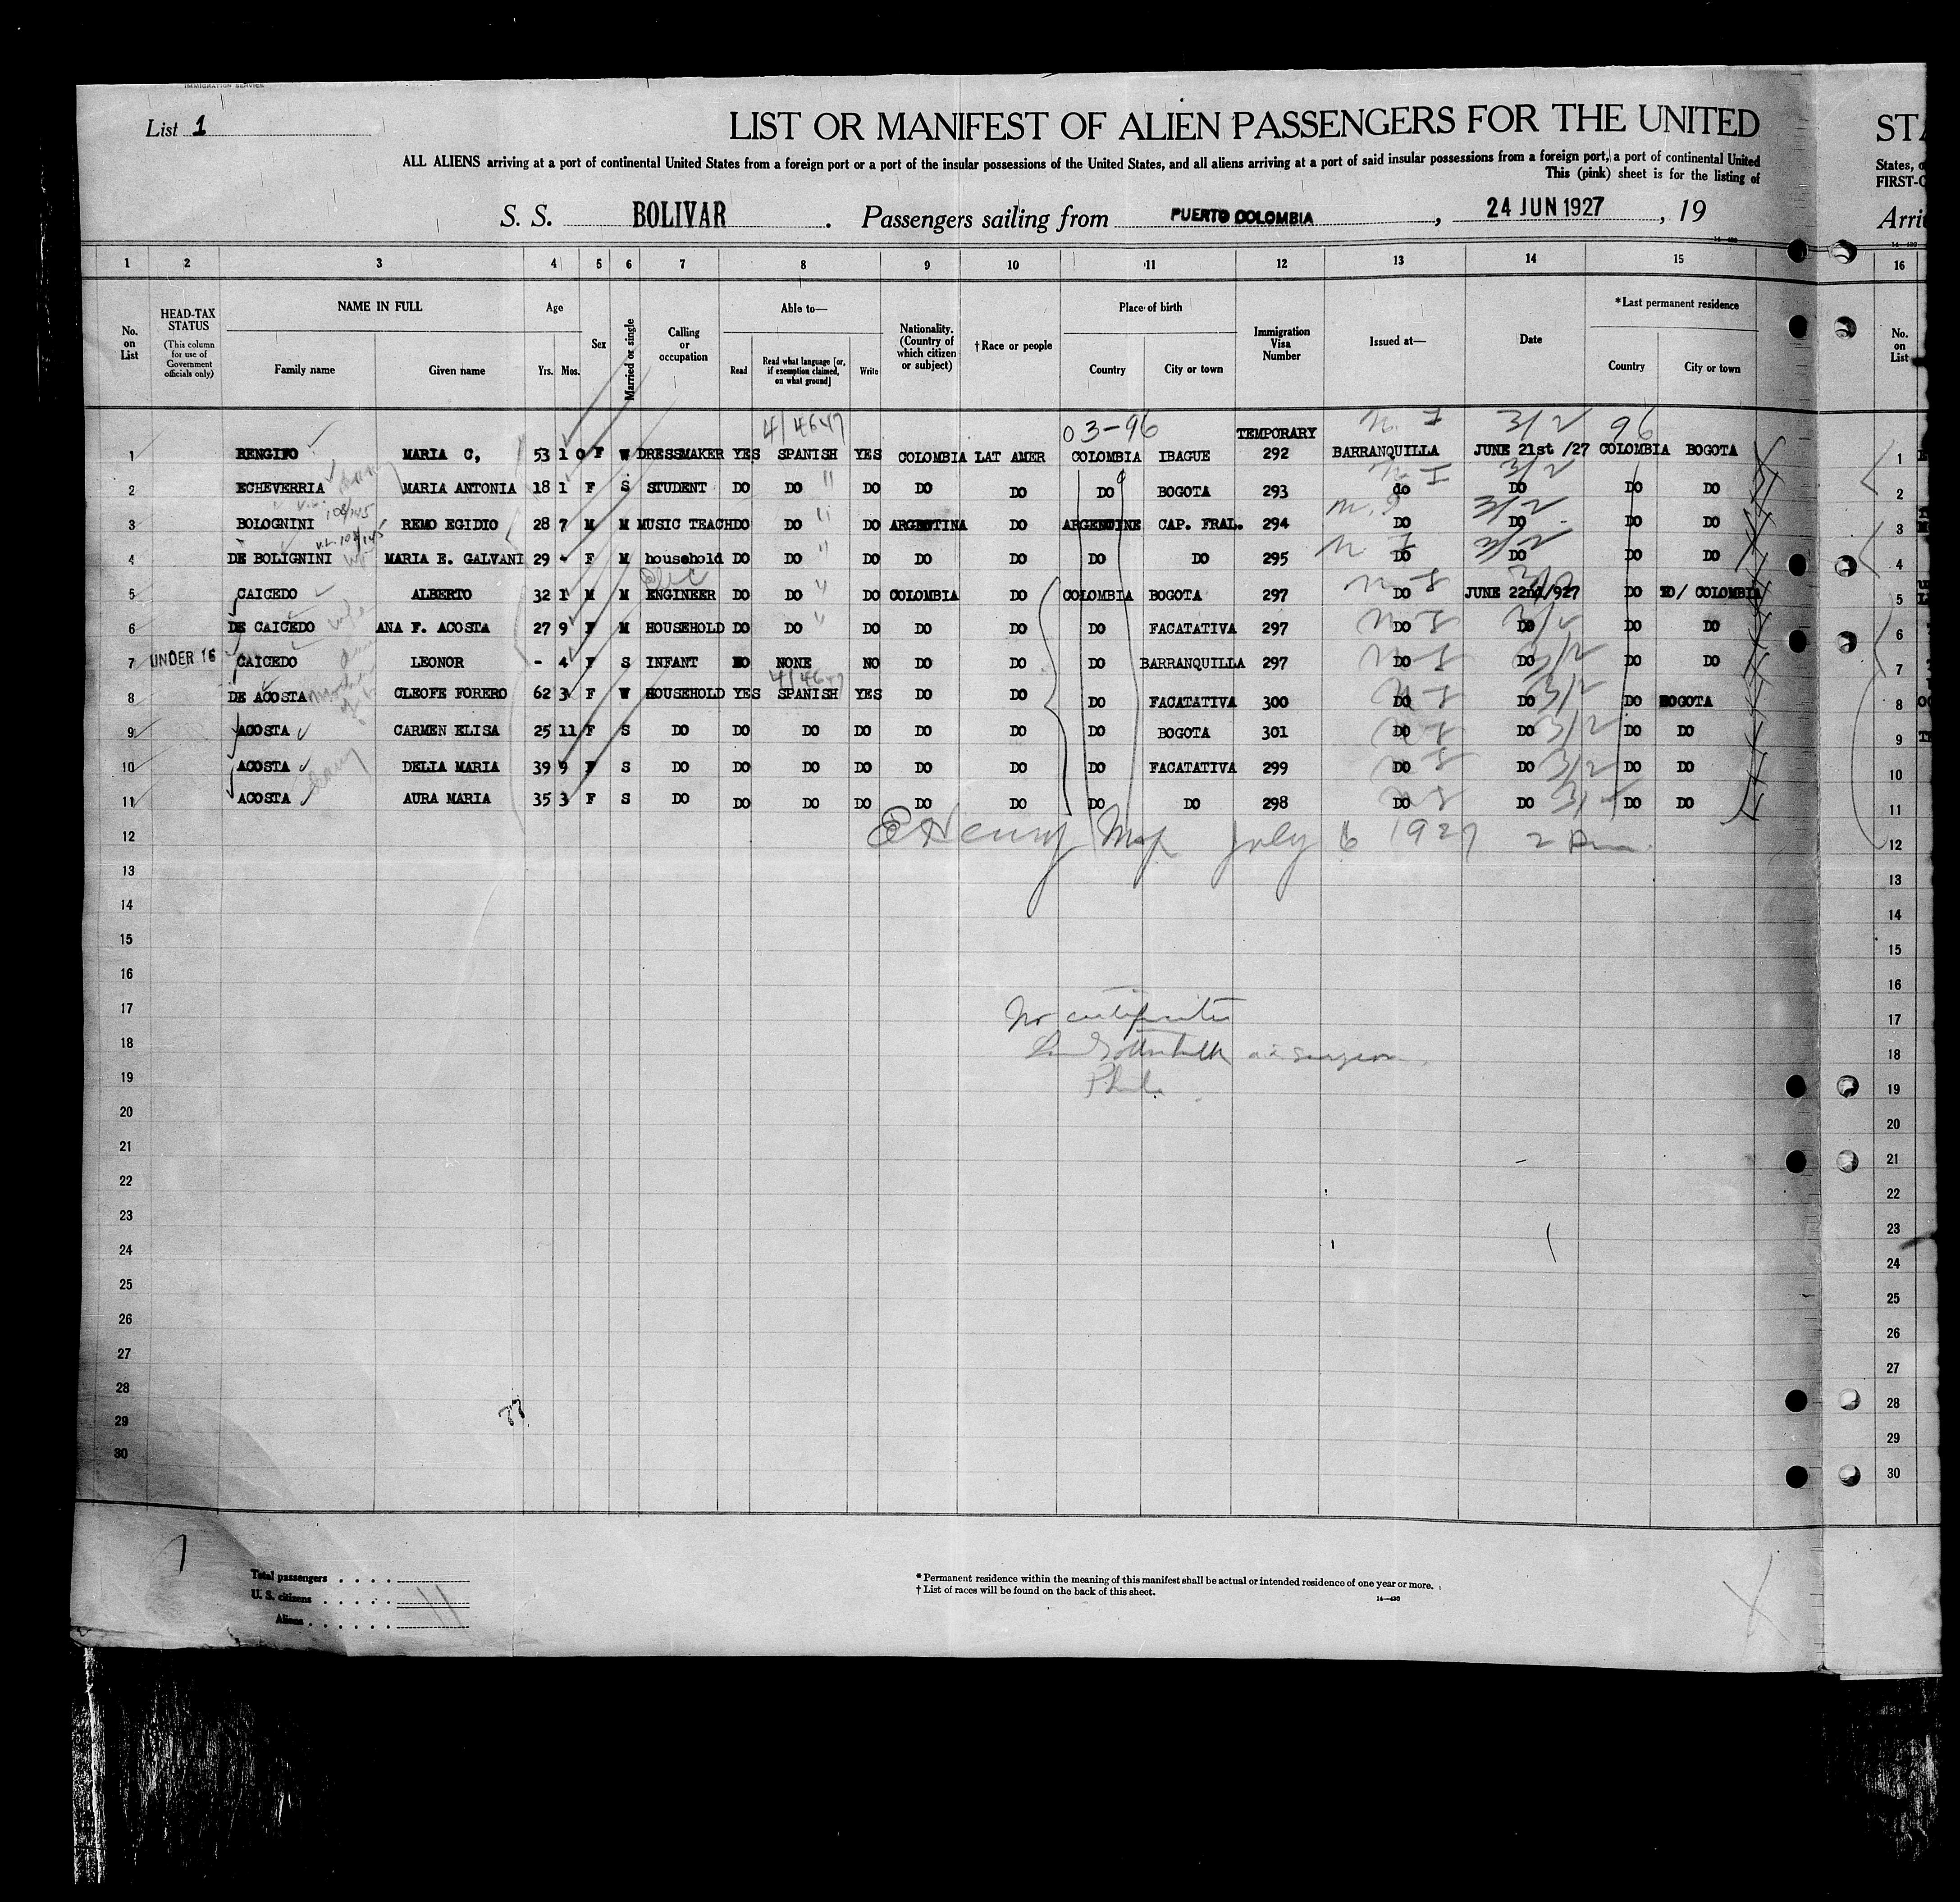 IMMIGRATION SERVICE
List 1
LIST OR MANIFEST OF ALIEN PASSENGERS FOR THE UNITED STA
ALL ALIENS arriving at a port of continental United States from a foreign port or a port of the insular possessions of the United States, and all aliens arriving at a port of said insular possessions from a foreign port, a port of continental United States, o
This (pink) sheet is for the listing of FIRST-C
S. S. BOLIVAR . Passengers sailing from PUERTO COLOMBIA , 24 JUN 1927 , 19 Arri
14—430
1 2 3 4 5 6 7 8 9 10 11 12 13 14 15 16
No. on List
HEAD-TAX STATUS (This column for use of Government officials only)
NAME IN FULL Family name Given name
Age Yrs. Mos.
Sex
Married or single
Calling or occupation
Able to— Read Read what language [or, if exemption claimed, on what ground] Write
Nationality. (Country of which citizen or subject)
†Race or people
Place of birth Country City or town
Immigration Visa Number
Issued at—
Date
*Last permanent residence Country City or town
No. on List
4/4647 03-96 3/2 96
TEMPORARY
1 RENGIFO MARIA C, 53 10 F W DRESSMAKER YES SPANISH YES COLOMBIA LAT AMER COLOMBIA IBAGUE 292 BARRANQUILLA JUNE 21st /27 COLOMBIA BOGOTA 1
2 ECHEVERRIA MARIA ANTONIA 18 1 F S STUDENT DO DO " DO DO DO DO BOGOTA 293 do DO DO DO 2
3 BOLOGNINI REMO EGIDIO 28 7 M M MUSIC TEACH DO DO " DO ARGENTINA DO ARGENTINE CAP. FRAL. 294 DO DO DO DO 3
4 DE BOLIGNINI MARIA E. GALVANI 29 - F M household DO DO " DO DO DO DO DO 295 DO DO DO DO 4
5 CAICEDO ALBERTO 32 1 M M ENGINEER DO DO " DO COLOMBIA DO COLOMBIA BOGOTA 297 DO JUNE 22nd/927 DO DO/ COLOMBIA 5
6 DE CAICEDO ANA F. ACOSTA 27 9 F M HOUSEHOLD DO DO " DO DO DO DO FACATATIVA 297 DO DO DO DO 6
7 UNDER 16 CAICEDO LEONOR - 4 F S INFANT NO NONE NO DO DO DO BARRANQUILLA 297 DO DO DO DO 7
8 DE ACOSTA CLEOFE FORERO 62 3 F W HOUSEHOLD YES SPANISH YES DO DO DO FACATATIVA 300 DO DO DO BOGOTA 8
9 ACOSTA CARMEN ELISA 25 11 F S DO DO DO DO DO DO DO BOGOTA 301 DO DO DO DO 9
10 ACOSTA DELIA MARIA 39 9 F S DO DO DO DO DO DO DO FACATATIVA 299 DO DO DO DO 10
11 ACOSTA AURA MARIA 35 3 F S DO DO DO DO DO DO DO DO 298 DO DO DO DO 11
12 July 6 1927 2 Pm 12
13 13
14 14
15 15
16 16
17 No certificates 17
18 surgeon 18
19 Phila. 19
20 20
21 21
22 22
23 23
24 24
25 25
26 26
27 27
28 28
29 29
30 30
Total passengers
U. S. citizens
Aliens
11
* Permanent residence within the meaning of this manifest shall be actual or intended residence of one year or more.
† List of races will be found on the back of this sheet.
14—430